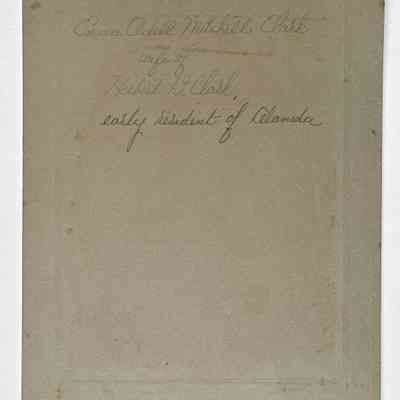 Emma Odell Mitchell Clark
wife of
Herbert W. Clark,
early resident of Alameda